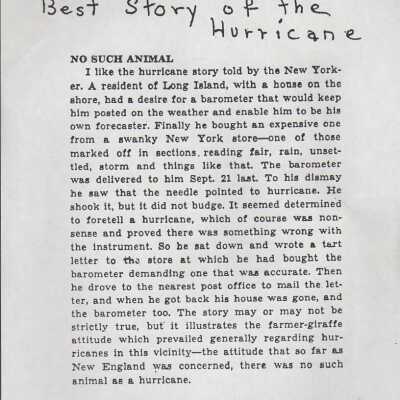 Best Story of the
Hurricane
NO SUCH ANIMAL
I like the hurricane story told by the New York-
er. A resident of Long Island, with a house on the
shore, had a desire for a barometer that would keep
him posted on the weather and enable him to be his
own forecaster. Finally he bought an expensive one
from a swanky New York store—one of those
marked off in sections, reading fair, rain, unset-
tled, storm and things like that. The barometer
was delivered to him Sept. 21 last. To his dismay
he saw that the needle pointed to hurricane. He
shook it, but it did not budge. It seemed determined
to foretell a hurricane, which of course was non-
sense and proved there was something wrong with
the instrument. So he sat down and wrote a tart
letter to the store at which he had bought the
barometer demanding one that was accurate. Then
he drove to the nearest post office to mail the let-
ter, and when he got back his house was gone, and
the barometer too. The story may or may not be
strictly true, but it illustrates the farmer-giraffe
attitude which prevailed generally regarding hur-
ricanes in this vicinity—the attitude that so far as
New England was concerned, there was no such
animal as a hurricane.